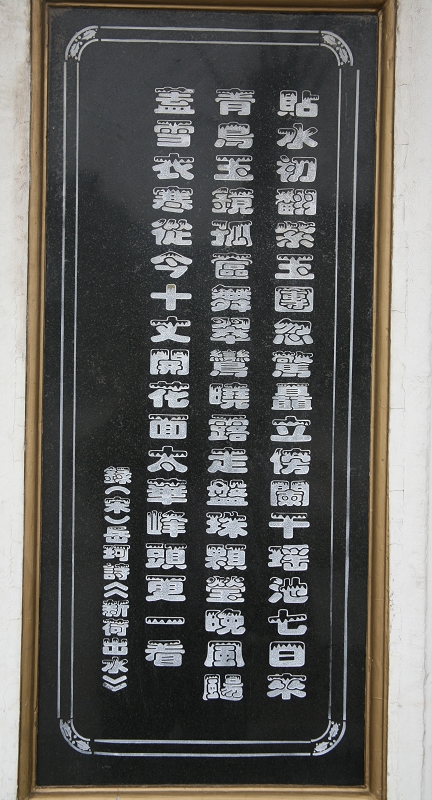 貼水初翻紫玉團忽驚矗立傍闌干瑶池七日來
青鳥玉鏡孤奩舞翠鸞曉露走盤珠顆瑩晚風颺
蓋雪衣寒從今十丈開花面太華峰頭更一看
錄《宋》岳珂詩《新荷出水》